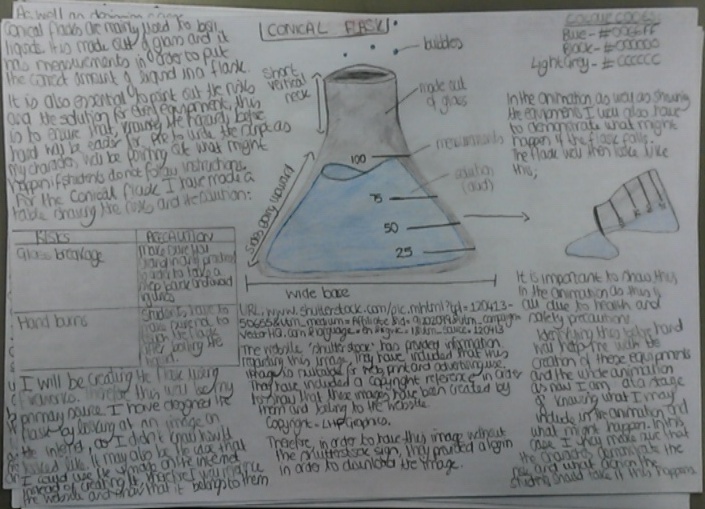 As well as
Conical flasks are mainly used to boil
liquids. It is made out of glass and it
has measurements in order to put
the correct amount of liquid in a flask.
It is also essential to point out the risks
and the solution for every equipment, this
is to ensure that, knowing the hazards before
hand will be easier for me to write the script as
my character will be pointing at what might
happen if students do not follow instructions.
For the Conical flask I have made a
table showing the risks and the solution:
RISKS
PRECAUTION
Glass breakage
make sure you
in order to
Hand burns
Students have to
not to
touch the flask
I will be creating the flask using
fireworks. Therefore this will be my
primary source. I have designed the
flask by looking at an image on
the internet, as I didn't know how it
looked like. It may also be the case that
I could use the image on the internet
instead of creating it, therefore
the website and show that it belongs to them
CONICAL FLASK
bubbles
Short
vertical
neck
made out
of glass
measurements
solution
(acid)
Sides going upward
100
75
50
25
wide base
URL: www.shutterstock.com/pic.mhtml?id=
The website "shutterstock" has provided information
regarding this image. They have included that this
image is suitable for web, print and advertising use.
They have included a copyright reference in order
to show that these images have been created by
them and belong to the website.
Copyright - LHP Graphics.
Therefore, in order to have this image without
the shutterstock sign, they provided a login
in order to download the image.
COLOUR CODES:
Blue -
Black - #000000
Light Grey - # CCCCCC
In the animation as well as showing
the equipments I will also have
to demonstrate what might
happen if the flask falls.
The flask will then look like
this;
It is important to show this
in the animation as this is
all due to health and
safety precautions.
Identifying this before hand
will help me with the
creation of these equipments
and the whole animation
as now I am at a stage
of knowing what I may
include in the animation and
what might happen. In this
case I may make sure that
the characters demonstrate the
risk and what action the
student should take if this happens